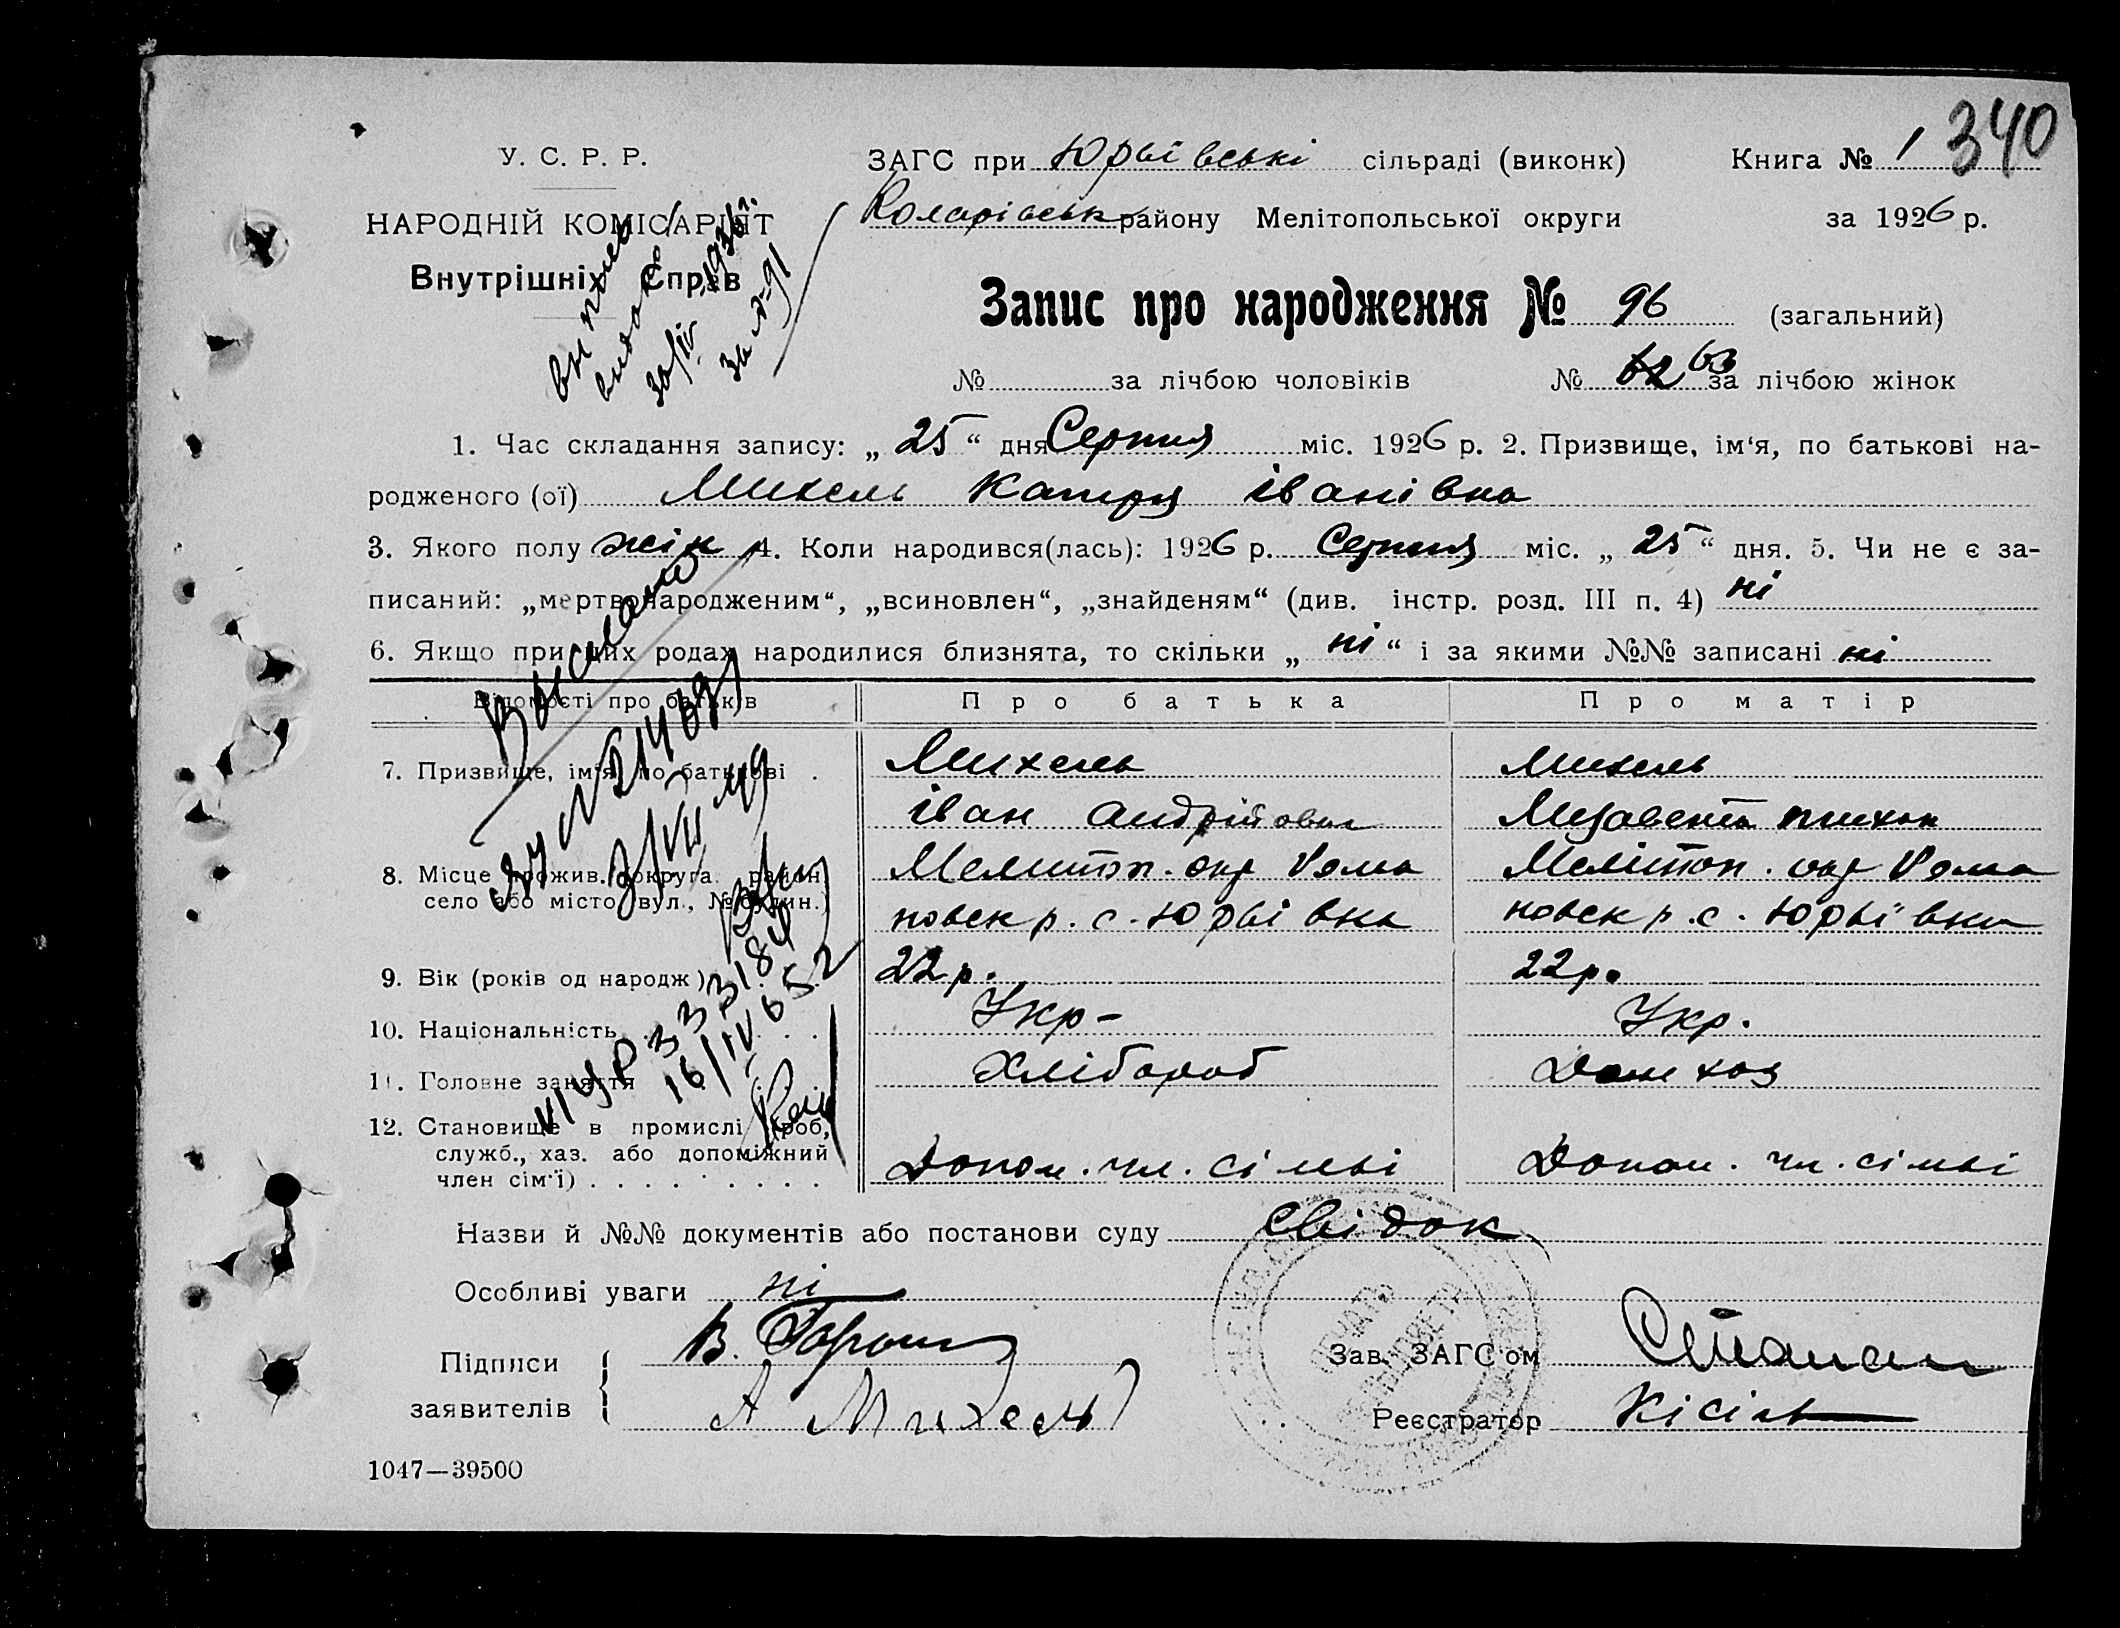 340
У. С. Р. Р.
ЗАГС при Юрьївські сільраді (виконк) Книга № 1
НАРОДНІЙ КОМІСАРІЯТ
Коларівськ району Мелітопольської округи за 1926 р.
Внутрішніх Справ
Запис про народження № 96 (загальний)
№ за лічбою чоловіків № 62 63 за лічбою жінок
1. Час складання запису: „ 25 “ дня Серпня міс. 1926 р. 2. Призвище, ім‘я, по батькові на-
родженого (ої) Михель Катря Іванівна
3. Якого полу жін 4. Коли народився(лась): 1926 р. Серпня міс. „ 25 “ дня. 5. Чи не є за-
писаний: „мертвонародженим“, „всиновлен“, „знайденям“ (див. інстр. розд. III п. 4) ні
6. Якщо при цих родах народилися близнята, то скільки „ ні “ і за якими №№ записані ні
Відомості про батьків Про батька Про матір
7. Призвище, ім'я, по батькові . Михель Михель
Іван Андрійович Лизавета
8. Місце прожив. округа. район Мелитоп. окр Рома Мелітоп. окр Рома
село або місто, вул., № будин. новск р. с. Юрьівка новск р. с. Юрьівка
9. Вік (років од народж) 22 р. 22 р.
10. Національність Укр- Укр.
11. Головне заняття Хлібороб Дом хоз
12. Становище в промислі (роб,
служб., хаз. або допоміжний Допом. чл. сімьі Допом. чл. сімьі
член сім'ї)
Назви й №№ документів або постанови суду Свідок
Особливі уваги ні
Підписи В.
Зав. ЗАГС'ом
заявителів А Михель
Реєстратор Кісіль
1047—39500
30/IV 1936 г.
за № 91
Выслано
16/IV 65.